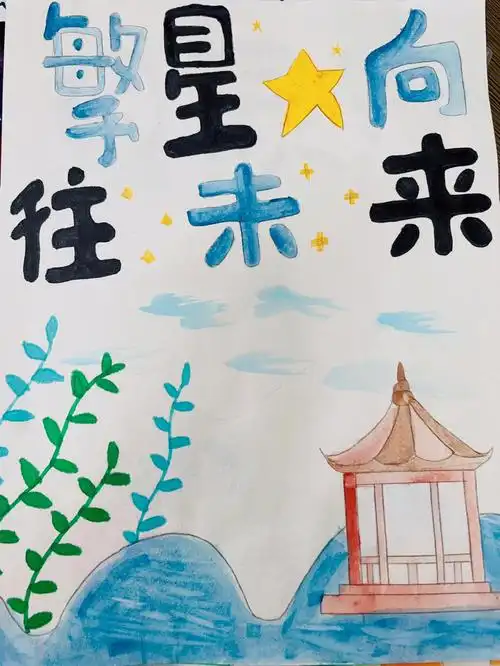 繁星向
往未来